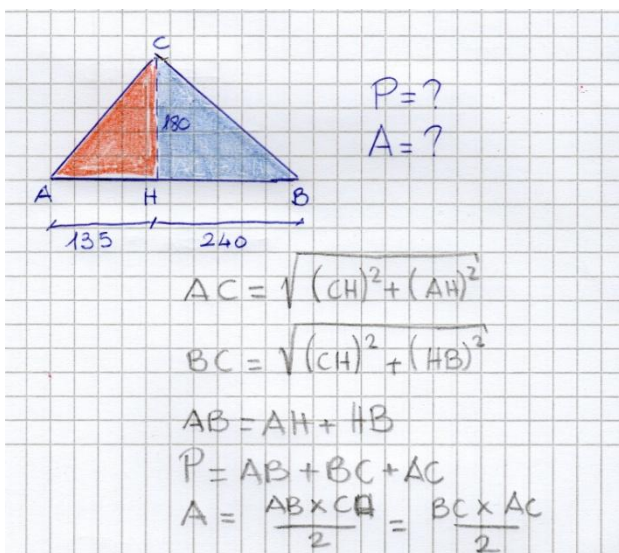 C
P=?
180
A=?
A H B
135 240
AC = √(CH)²+(AH)²
BC = √(CH)²+(HB)²
AB = AH + HB
P = AB + BC + AC
A = AB x CH / 2 = BC x AC / 2